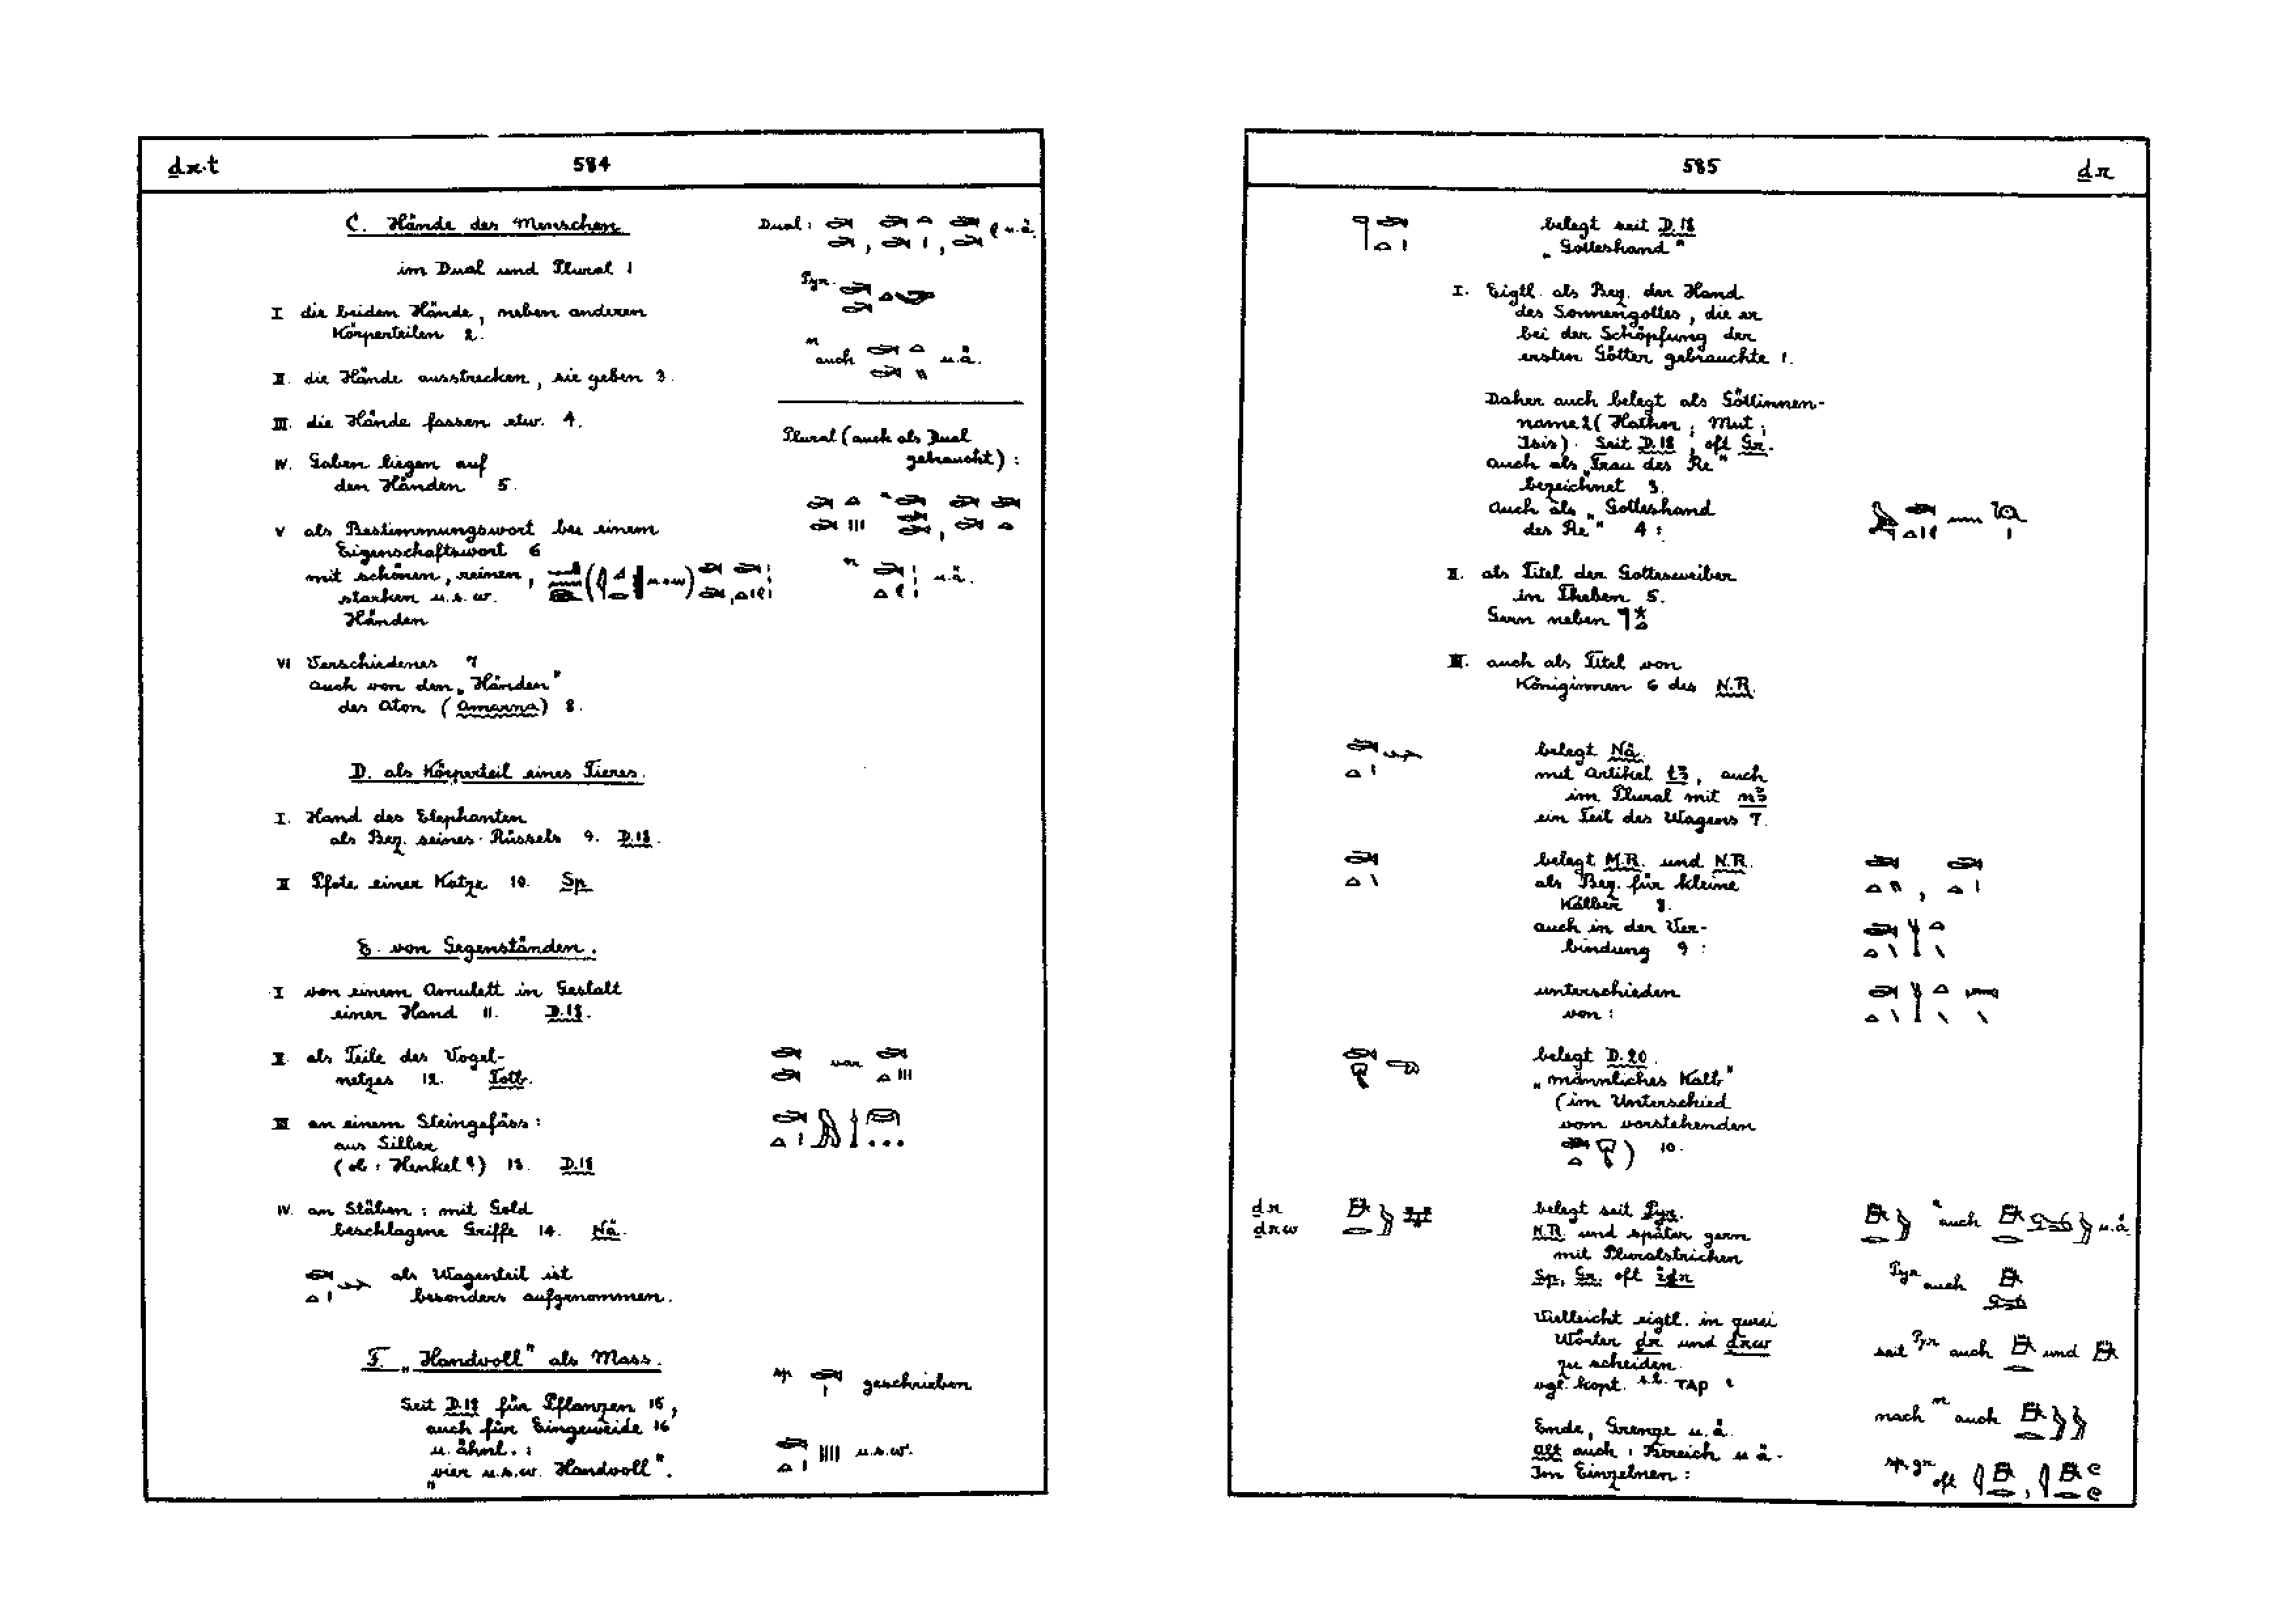 ḏr.t
584
C. Hände des Menschen
im Dual und Plural 1
I die beiden Hände, neben anderen
Körperteilen 2.
II. die Hände ausstrecken, sie geben 3.
III. die Hände fassen etw. 4.
IV. Gaben liegen auf
den Händen 5.
V als Bestimmungswort bei einem
Eigenschaftswort 6
mit schönen, reinen,
starken u.s.w.
Händen
VI Verschiedenes 7
auch von den „Händen"
des Aton (Amarna) 8.
D. als Körperteil eines Tieres.
I. Hand des Elephanten
als Bez. seines Rüssels 9. D.18.
II Pfote einer Katze 10. Sp
E. von Gegenständen.
I von einem Amulett in Gestalt
einer Hand 11. D.18.
II als Teile des Vogel-
netzes 12. Totb.
III an einem Steingefäss:
aus Silber
(ob: Henkel?) 13. D.18
IV. an Stäben: mit Gold
beschlagene Griffe 14. Nä.
als Wagenteil ist
besonders aufgenommen.
F. „Handvoll" als Mass.
Seit D.18 für Pflanzen 15,
auch für Eingeweide 16
u. ähnl.:
„vier u.s.w. Handvoll".
Dual: u.ä.
Pyr.
n auch u.ä.
Plural (auch als Dual
gebraucht):
n
n u.ä.
var
sp geschrieben
u.s.w.
585
ḏr
belegt seit D.18
„Gotteshand"
I. Eigtl. als Bez. der Hand
des Sonnengottes, die er
bei der Schöpfung der
ersten Götter gebrauchte 1.
Daher auch belegt als Göttinnen-
name 2 (Hathor, Mut,
Isis). Seit D.18, oft Gr.
auch als „Frau des Re"
bezeichnet 3.
Auch als „Gotteshand
des Re" 4:
II. als Titel der Gottesweiber
in Theben 5.
Gern neben
III. auch als Titel von
Königinnen 6 des N.R.
belegt Nä.
mit Artikel tꜣ, auch
im Plural mit nꜣ
ein Teil des Wagens 7.
belegt M.R. und N.R.
als Bez. für kleine
Kälber 8.
auch in der Ver-
bindung 9:
unterschieden
von:
belegt D.20.
„männliches Kalb"
(im Unterschied
vom vorstehenden
) 10.
ḏr
ḏrw
belegt seit Pyr.
N.R. und später gern
mit Pluralstrichen
Sp. Gr. oft iḏr
Vielleicht eigtl. in zwei
Wörter ḏr und ḏrw
zu scheiden.
vgl. kopt. ⲧⲁⲣ ?
Ende, Grenze u.ä.
alt auch: Bereich u.ä.
Im Einzelnen:
n auch u.ä.
Pyr auch
seit Pyr auch und
nach n auch
sp gr oft